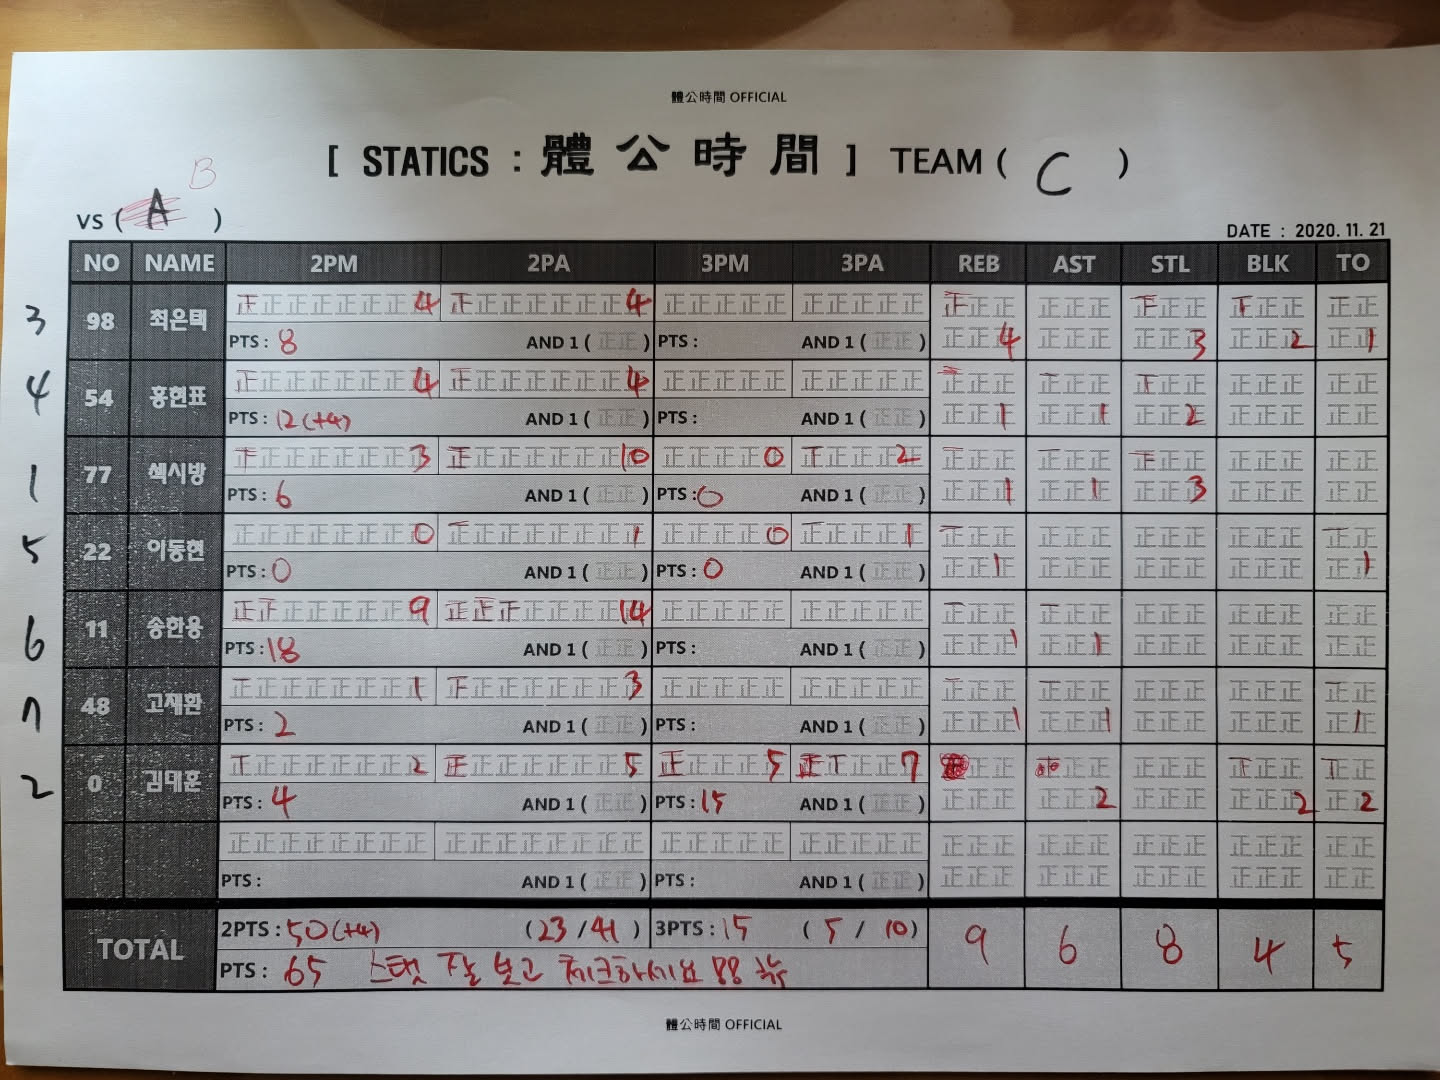 體公時間 OFFICIAL
[ STATICS : 體公時間 ] TEAM ( C )
B
VS ( A )
DATE : 2020. 11. 21
NO NAME 2PM 2PA 3PM 3PA REB AST STL BLK TO
3 98 최은택 正正正正正正正 4 正正正正正正正 4 正正正正正 正正正正正 正正正 正正正 正正正 正正正 正正
PTS : 8 AND 1 ( 正正 ) PTS : AND 1 ( 正正 ) 正正正 4 正正正 正正正 3 正正正 2 正正 1
4 54 홍현표 正正正正正正正 4 正正正正正正正 4 正正正正正 正正正正正 正正正 正正正 正正正 正正正 正正
PTS : 12 (+4) AND 1 ( 正正 ) PTS : AND 1 ( 正正 ) 正正正 1 正正正 1 正正正 2 正正正 正正
1 77 섹시방 正正正正正正正 3 正正正正正正正 10 正正正正 0 正正正正 2 正正正 正正正 正正正 正正正 正正
PTS : 6 AND 1 ( 正正 ) PTS : 0 AND 1 ( 正正 ) 正正正 1 正正正 1 正正正 3 正正正 正正
5 22 이동현 正正正正正正正 0 正正正正正正正 1 正正正正 0 正正正正 1 正正正 正正正 正正正 正正正 正正
PTS : 0 AND 1 ( 正正 ) PTS : 0 AND 1 ( 正正 ) 正正正 1 正正正 正正正 正正正 正正 1
6 11 송한용 正正正正正正正 9 正正正正正正正 14 正正正正正 正正正正正 正正正 正正正 正正正 正正正 正正
PTS : 18 AND 1 ( 正正 ) PTS : AND 1 ( 正正 ) 正正正 1 正正正 1 正正正 正正正 正正
7 48 고제환 正正正正正正正 1 正正正正正正正 3 正正正正正 正正正正正 正正正 正正正 正正正 正正正 正正
PTS : 2 AND 1 ( 正正 ) PTS : AND 1 ( 正正 ) 正正正 1 正正正 1 正正正 正正正 正正 1
2 0 김대훈 正正正正正正正 2 正正正正正正正 5 正正正正 5 正正正正 7 正正 正正 正正正 正正正 正正
PTS : 4 AND 1 ( 正正 ) PTS : 15 AND 1 ( 正正 ) 正正正 正正正 2 正正正 正正正 2 正正 2
正正正正正正正正 正正正正正正正正 正正正正正 正正正正正 正正正 正正正 正正正 正正正 正正
PTS : AND 1 ( 正正 ) PTS : AND 1 ( 正正 ) 正正正 正正正 正正正 正正正 正正
TOTAL 2PTS : 50 (+4) ( 23 / 41 ) 3PTS : 15 ( 5 / 10 ) 9 6 8 4 5
PTS : 65 스탯 잘 보고 체크하세요 88
體公時間 OFFICIAL